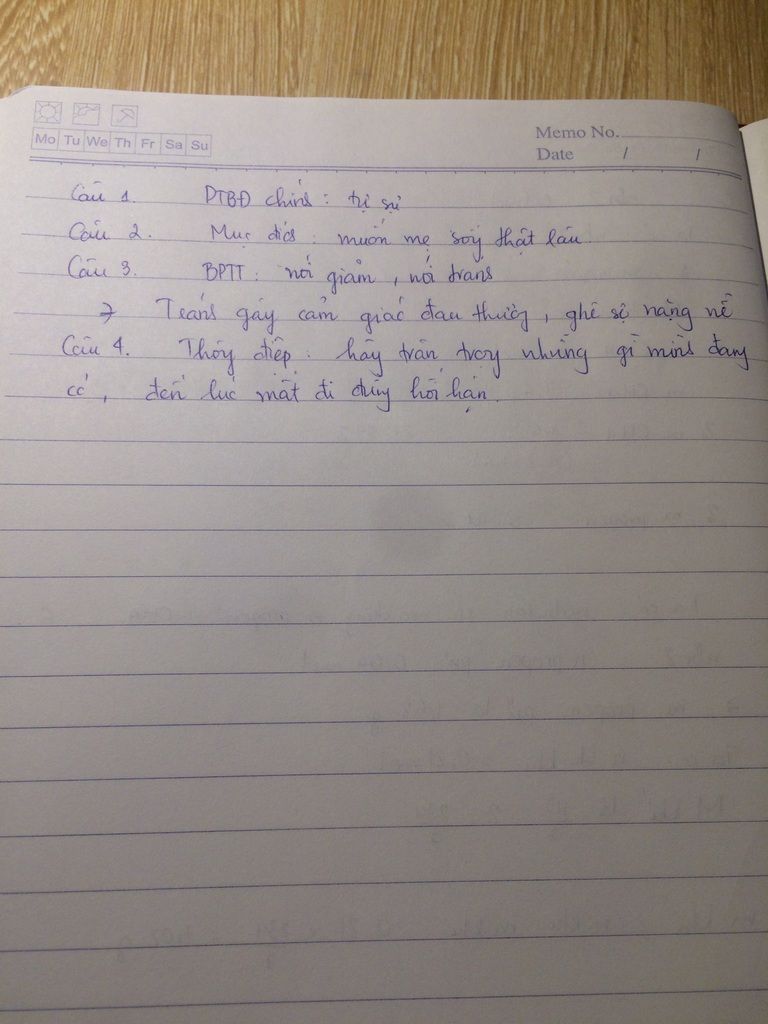 Mo Tu We Th Fr Sa Su
Memo No.
Date / /
Câu 1. PTBĐ chính : tự sự
Câu 2. Mục đích : muốn mẹ sống thật lâu.
Câu 3. BPTT : nói giảm, nói tránh
→ Tránh gây cảm giác đau thương, ghê sợ nặng nề
Câu 4. Thông điệp : hãy trân trọng những gì mình đang
có, đến lúc mất đi đừng hối hận.